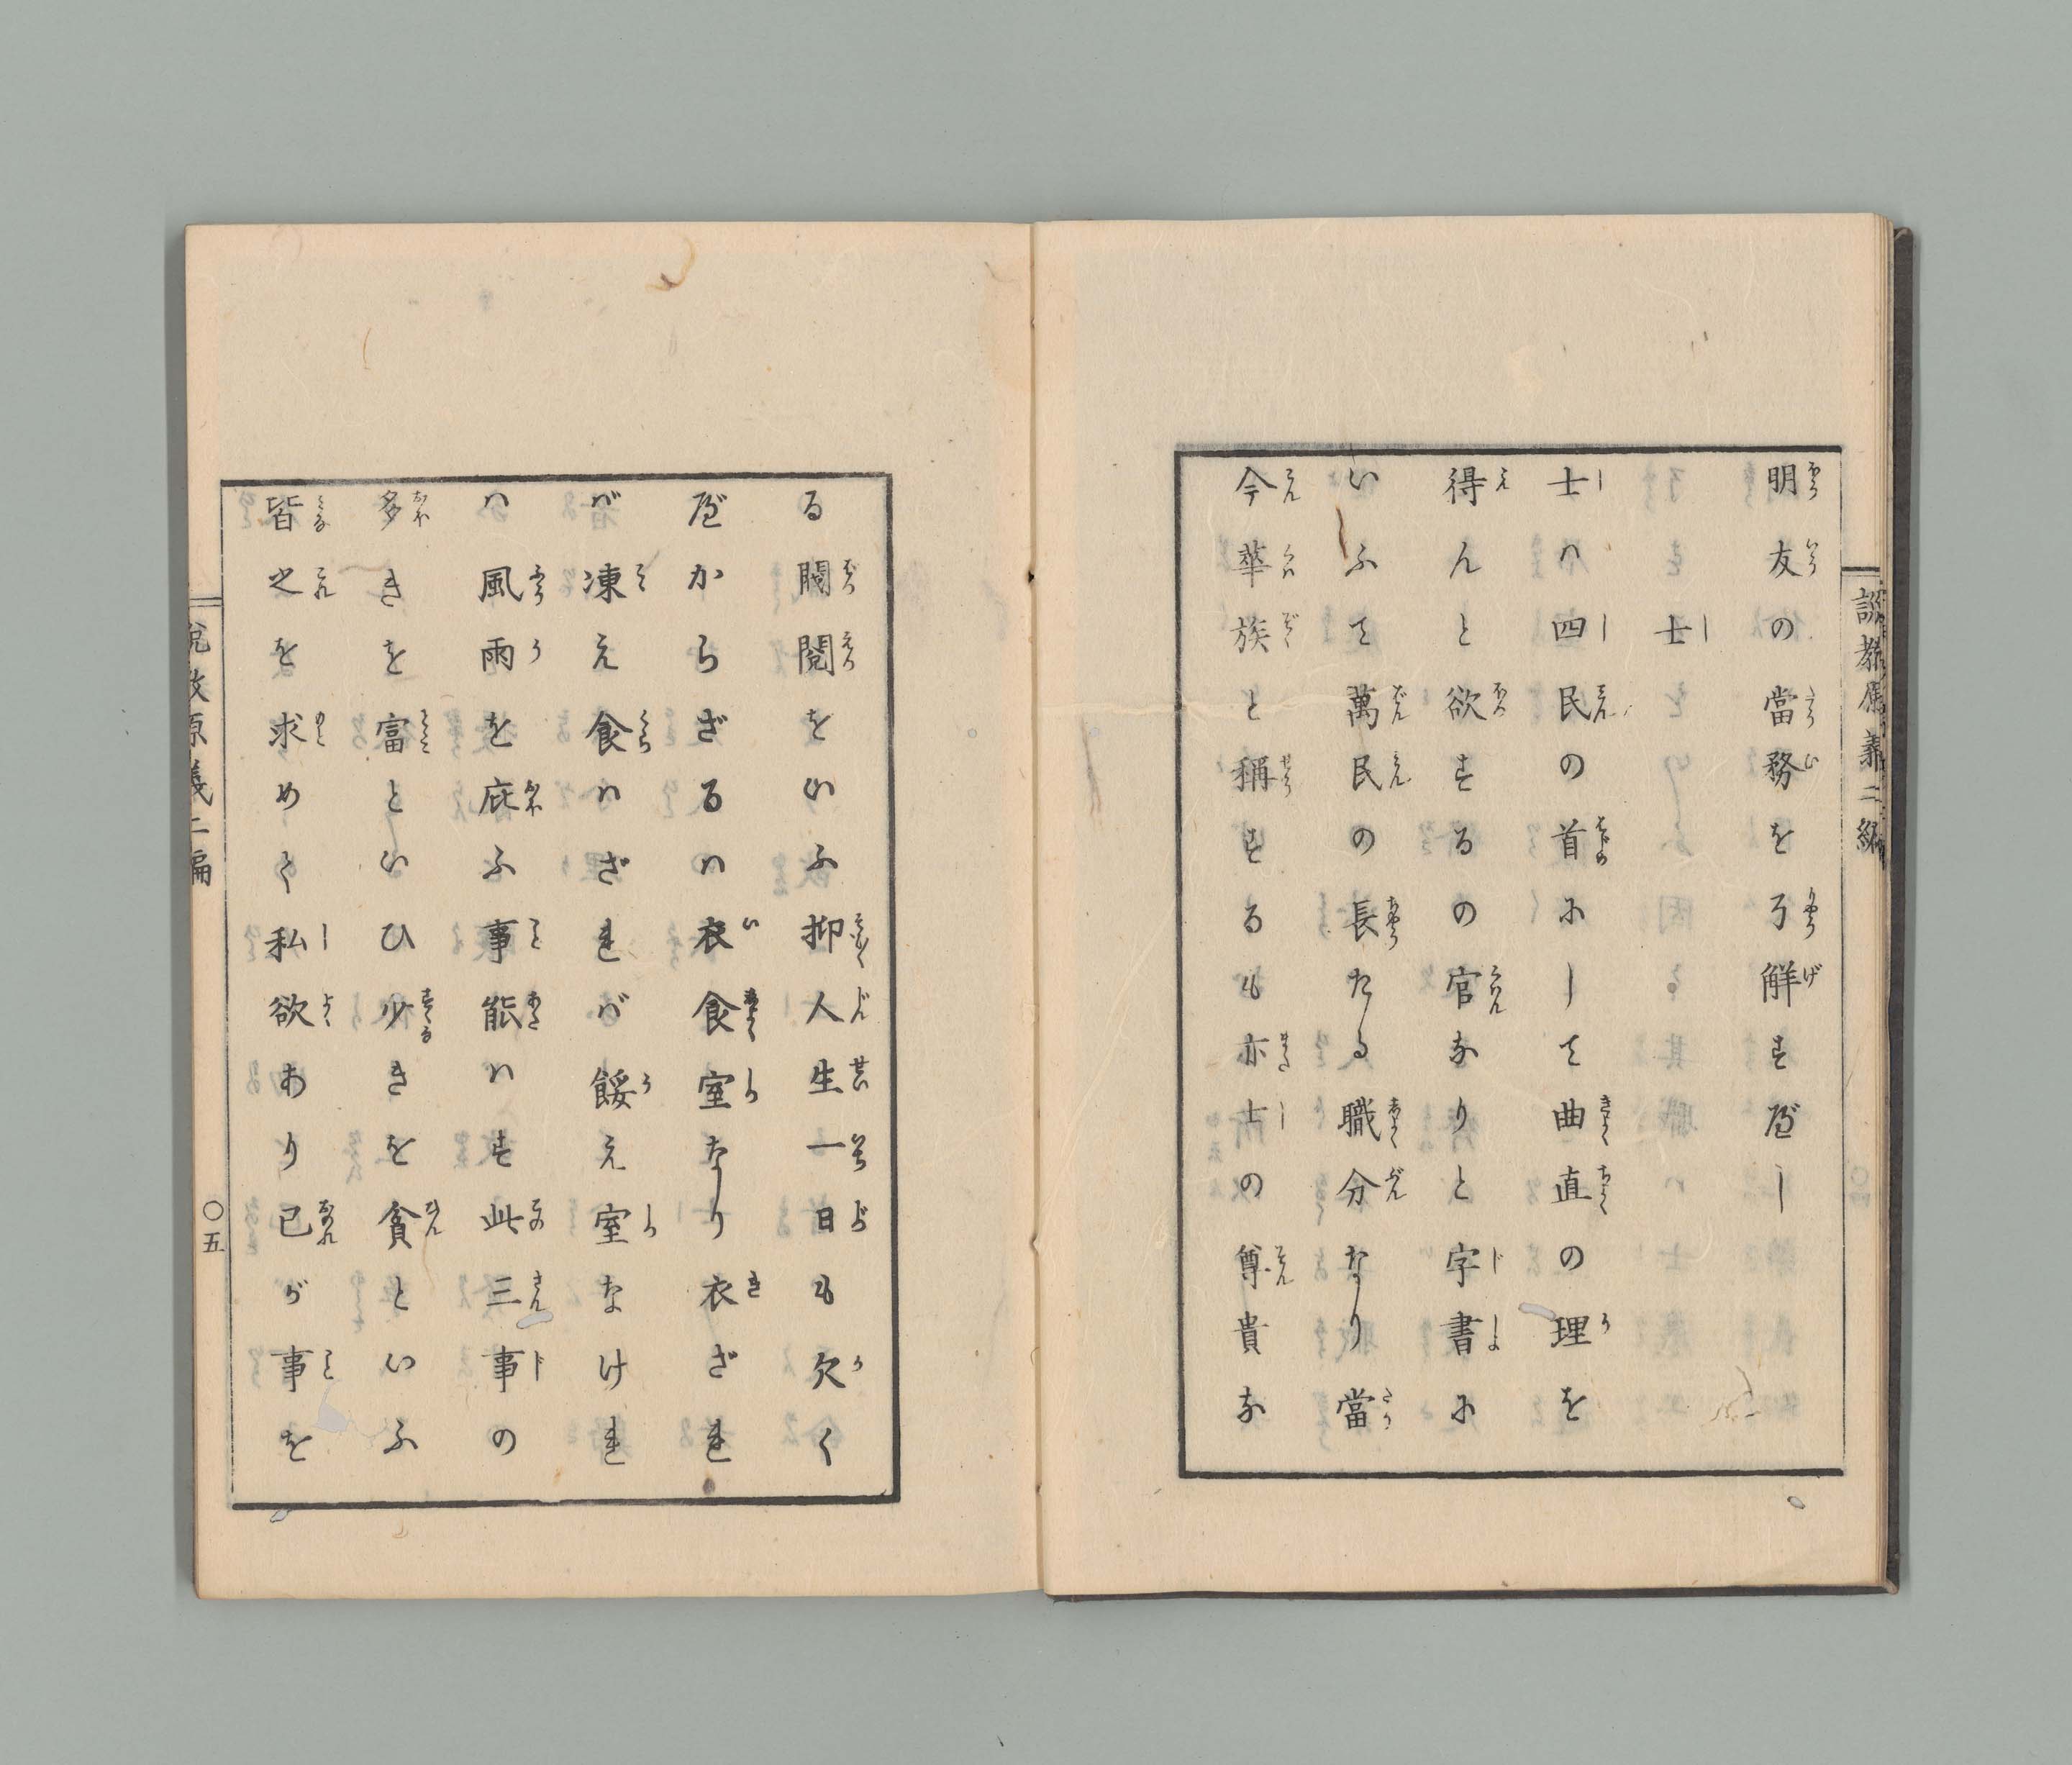 明友の當務を了解す可し
士
士ハ四民の首にして曲直の理を
得んと欲するの官なりと字書に
いふて萬民の長たる職分なり當
今華族と稱するも亦士の尊貴な
る閥閲をいふ抑人生一日も欠く
べからざるハ衣食室なり衣ざれ
バ凍え食ハざれバ餒え室なけれ
ハ風雨を庇ふ事能ハず此三事の
多きを富といひ少きを貧といふ
皆之を求めて私欲あり己が事を
説教原義二編
〇五